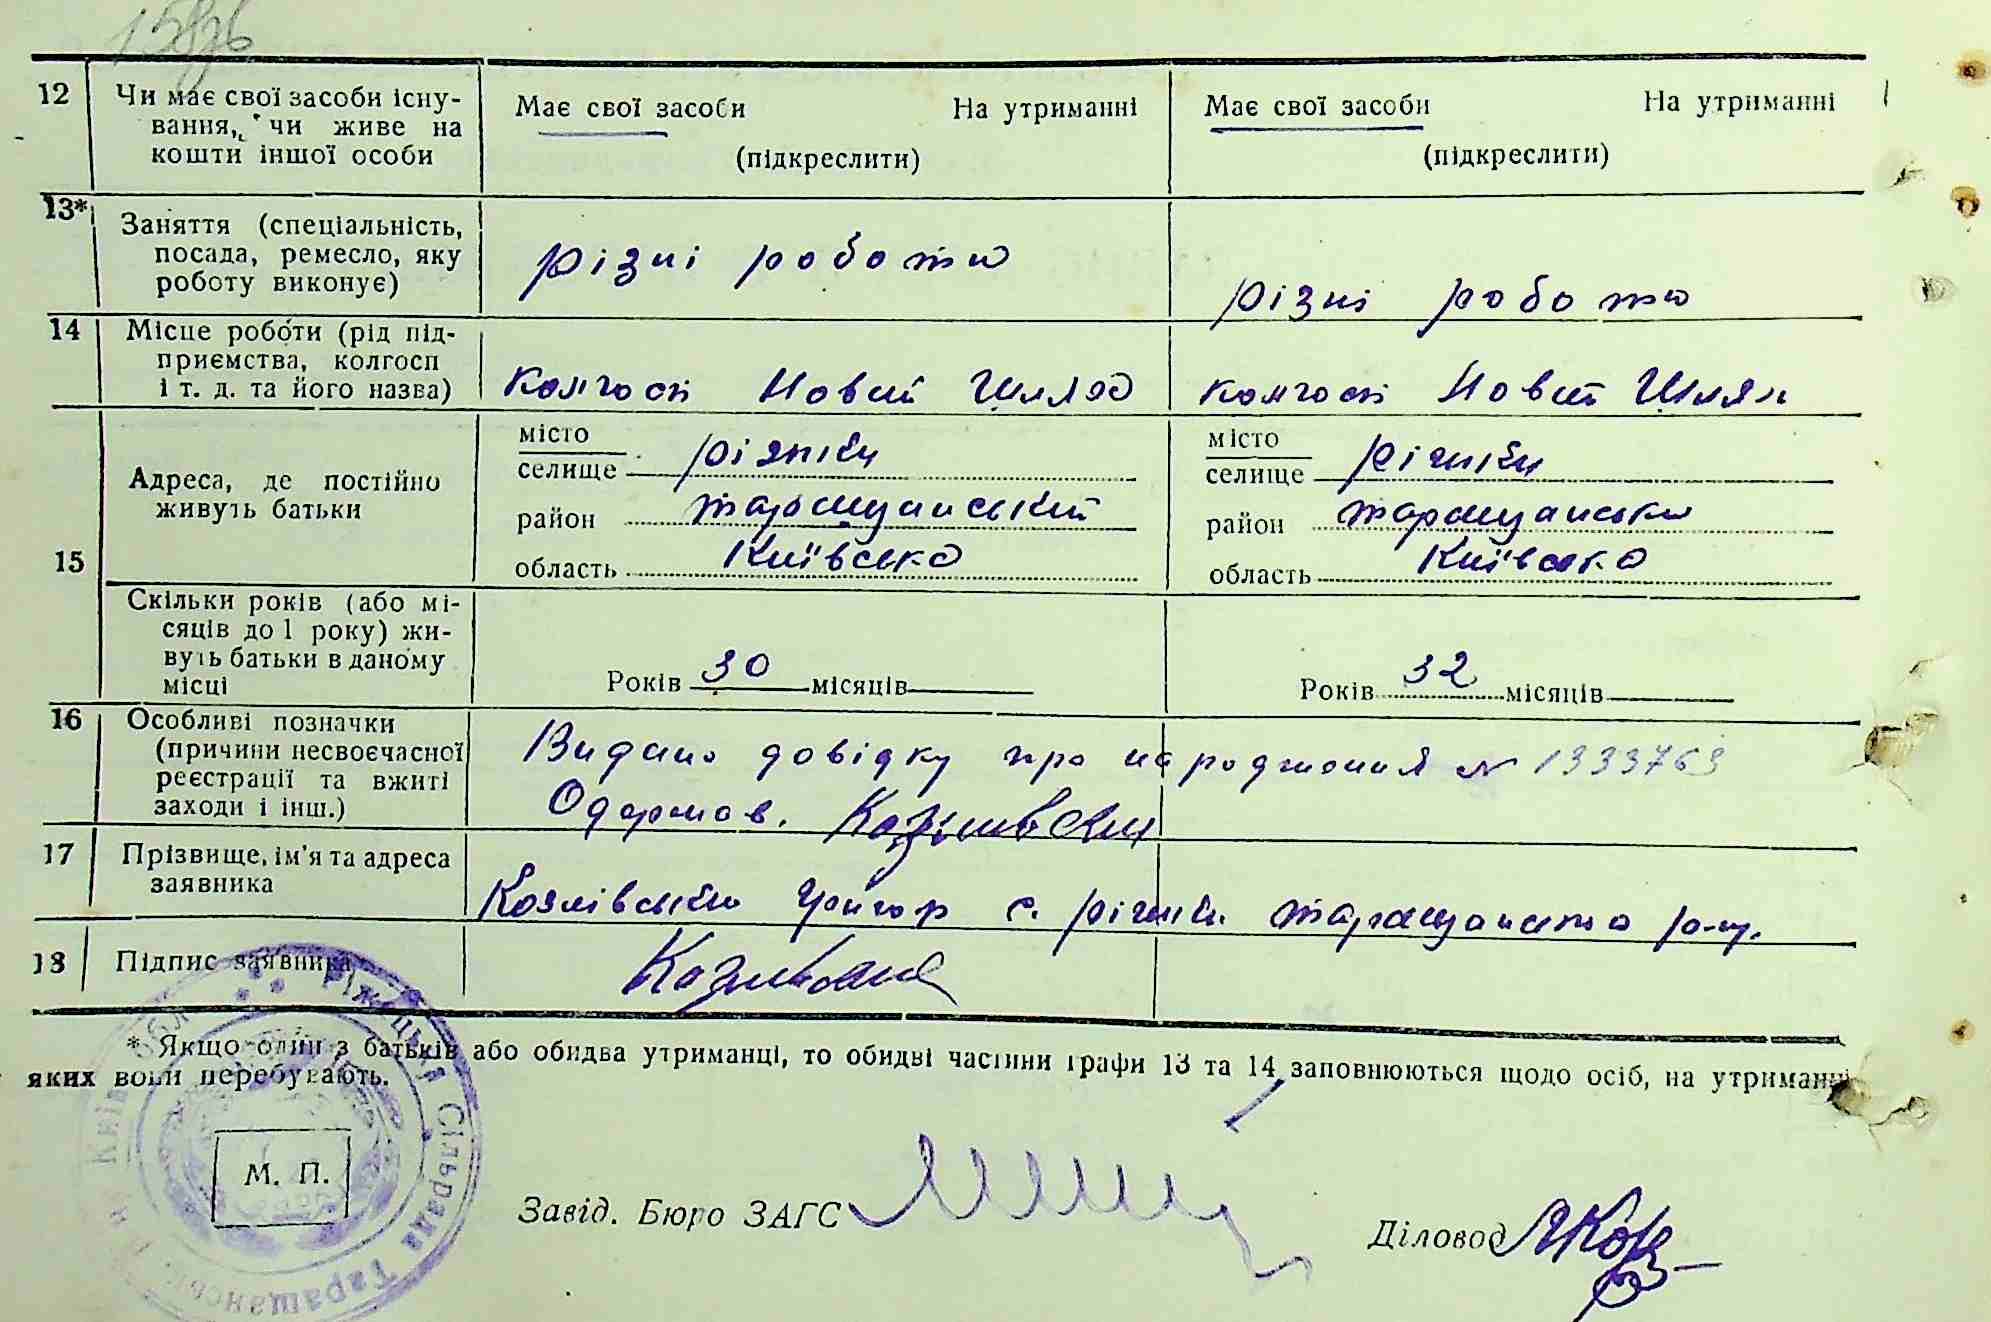 12 Чи має свої засоби існу-
вання, чи живе на
кошти іншої особи
Має свої засоби На утриманні
(підкреслити)
Має свої засоби На утриманні
(підкреслити)
13* Заняття (спеціальність,
посада, ремесло, яку
роботу виконує)
різні роботи
різні роботи
14 Місце роботи (рід під-
приємства, колгосп
і т. д. та його назва)
колгосп Новий Шлях
колгосп Новий Шлях
15
Адреса, де постійно
живуть батьки
місто
селище ріжки
район таращанський
область Київсько
місто
селище ріжки
район таращансько
область Київсько
Скільки років (або мі-
сяців до 1 року) жи-
вуть батьки в даному
місці
Років 30 місяців
Років 32 місяців
16 Особливі позначки
(причини несвоєчасної
реєстрації та вжиті
заходи і інш.)
Видано довідку про народження № 1333763
Одержав.
17 Прізвище, ім'я та адреса
заявника
Козлівський Григор с. ріжки таращансько р-ну.
18 Підпис заявника
* Якщо один з батьків або обидва утриманці, то обидві частини графи 13 та 14 заповнюються щодо осіб, на утриманні
яких вони перебувають.
М. П.
Сільрада Таращансь
Завід. Бюро ЗАГС
Діловод